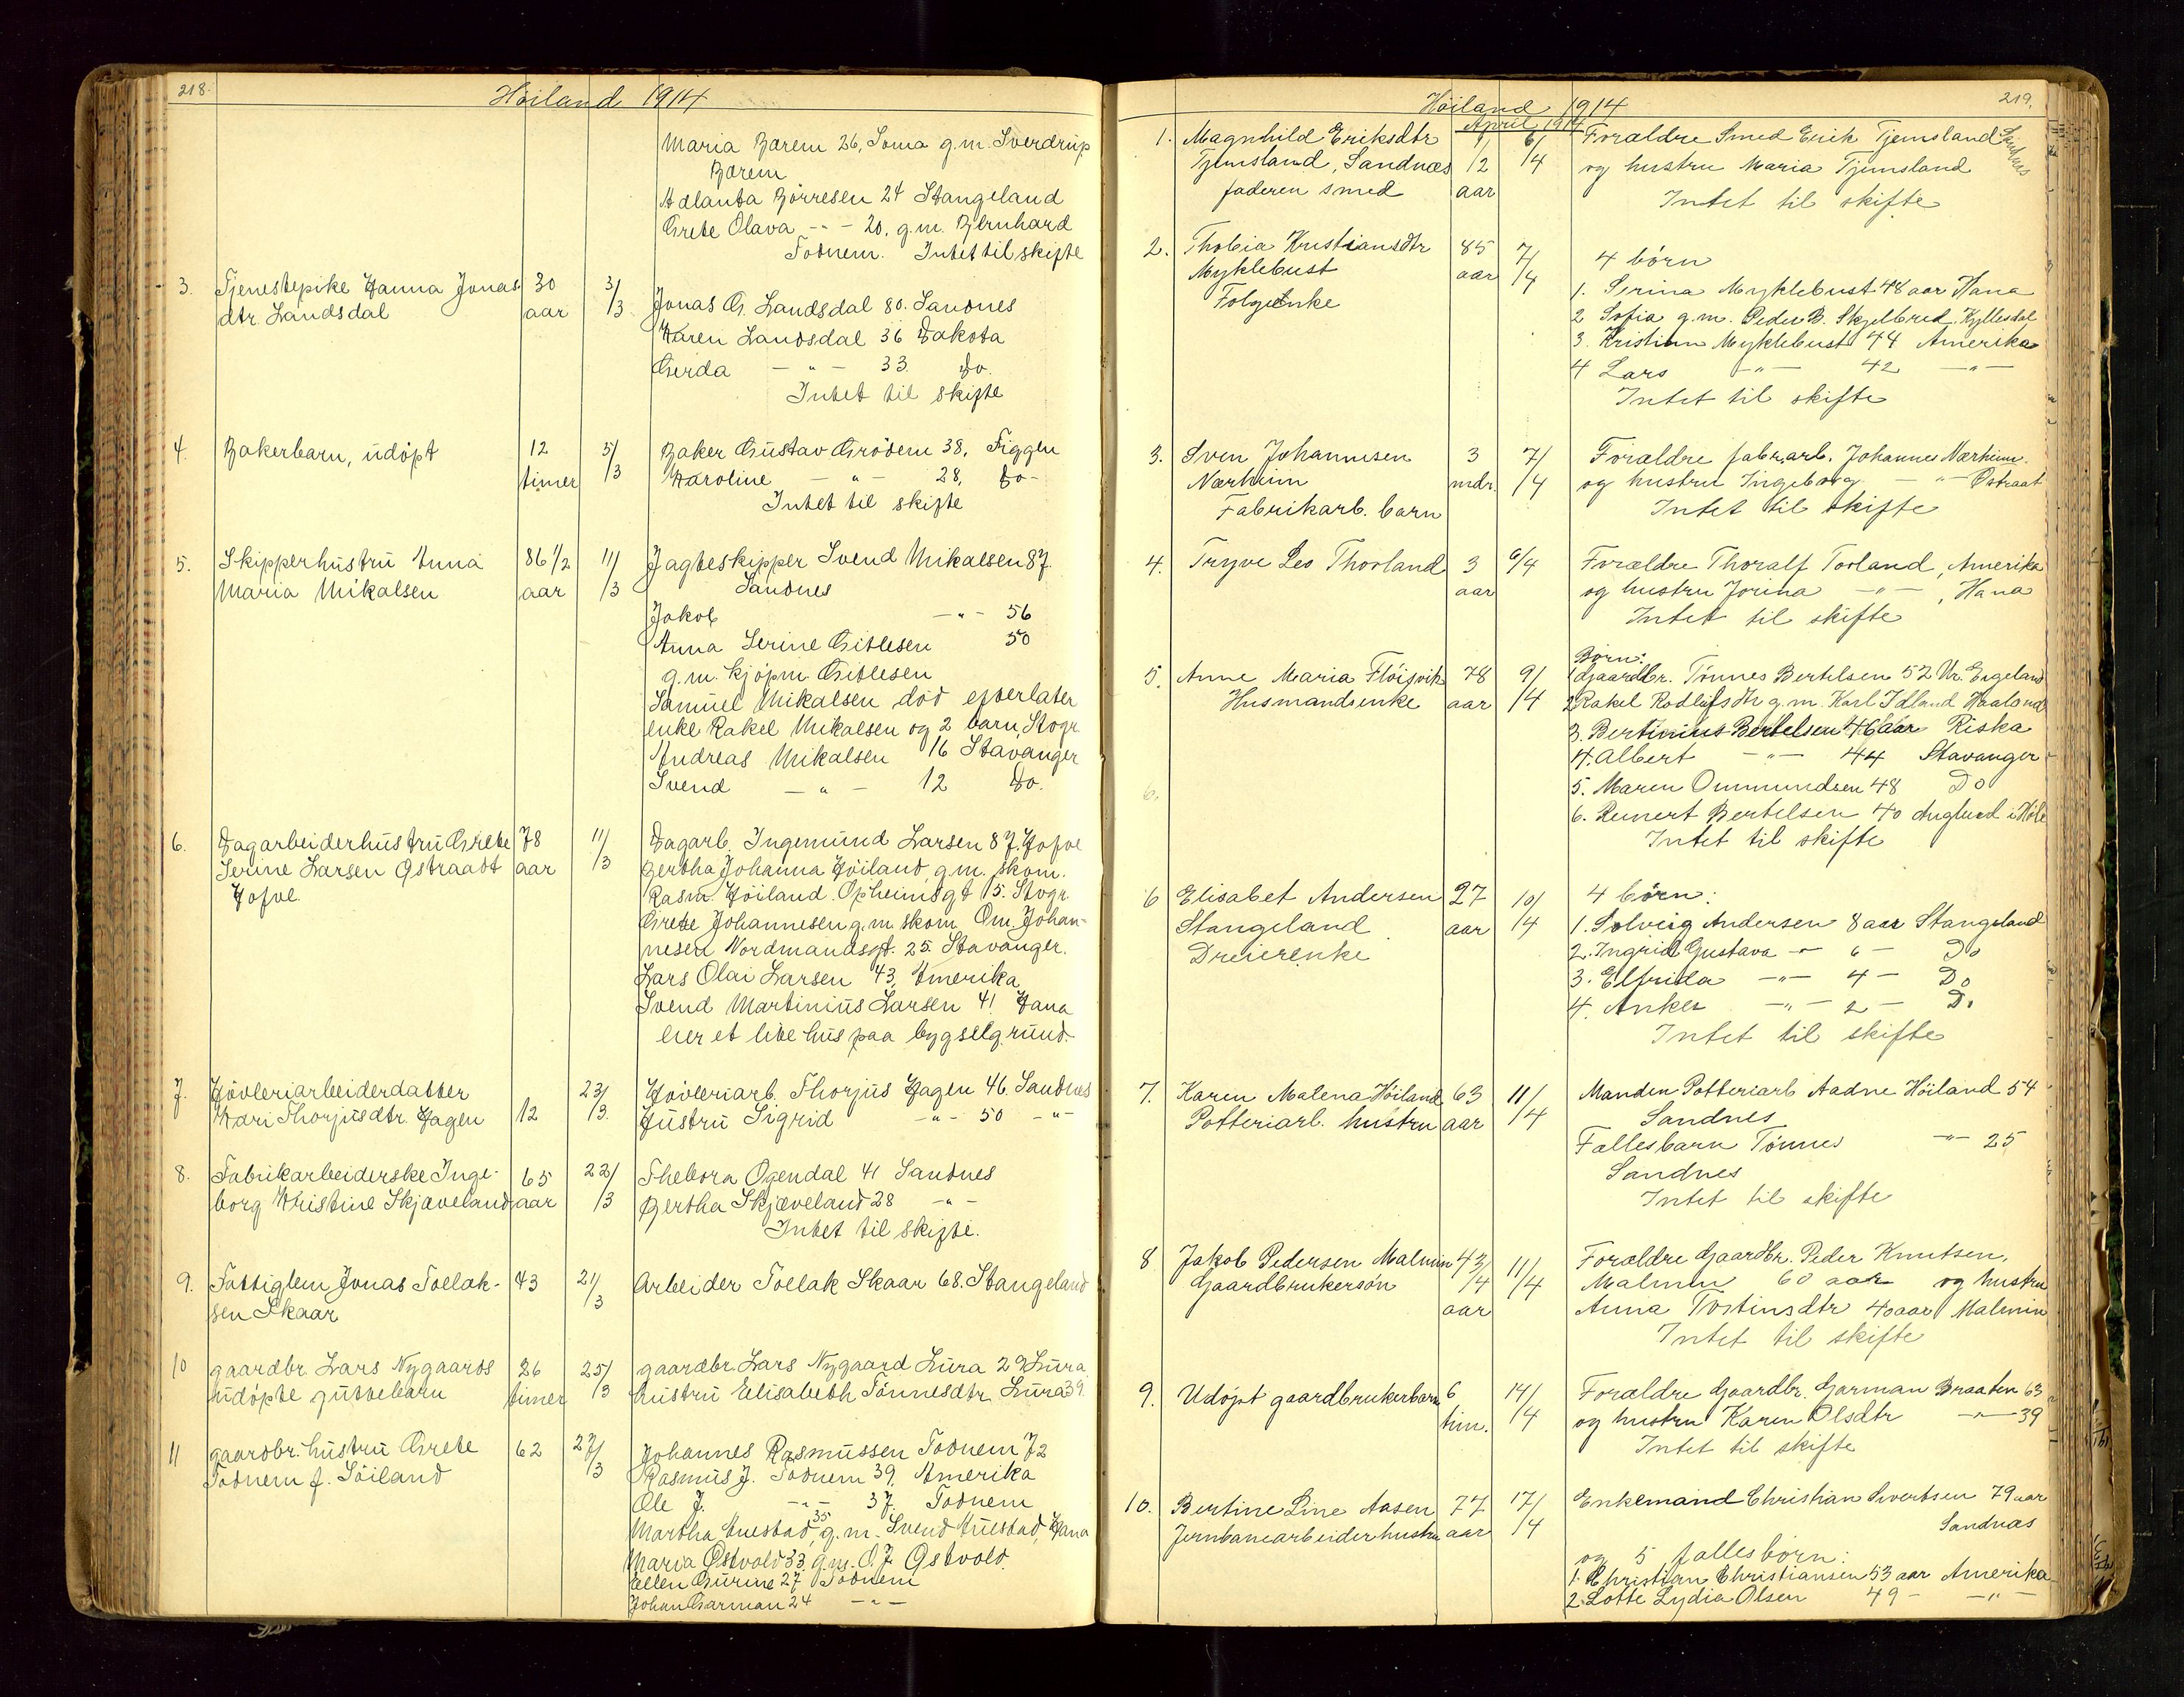 218.
Höiland 1914
Maria Bærem 26, Soma g.m. Sverdrup
Bærem
Adlanta Börresen 24 Stangeland
Grete Olava -"- 20, g.m. Bernhard
Todnem. Intet til skifte
3. Tjenestepike Hanna Jonas 30 3/
dtr. Landsdal aar /3
Jonas G. Landsdal 80. Sandnes
Karen Landsdal 36 Dakota
Gerda -"- 33. Do.
Intet til skifte
4. Bakerbarn, udöpt 12 5/ Baker Gustav Grödem 38, Figgen
timer /3 Karoline -"- 28, Do-
Intet til skifte
5. Skipperhustru Anna 86 1/2 11/ Jagteskipper Svend Mikalsen 87.
Maria Mikalsen aar /3 Sandnes
Jakob -"- 56
Anna Serine Gitlesen 50
g.m. kjöpm. Gitlesen
Samuel Mikalsen död efterlater
enke Rakel Mikalsen og 2 barn, Stvgr.
Andreas Mikalsen 16 Stavanger
Svend -"- 12 Do.
6. Dagarbeiderhustru Grete 78 11/ Dagarb. Ingemund Larsen 87. Hofve
Serine Larsen Østraadt aar /3 Bertha Johanna Höiland, g.m. skom.
Hofve. Rasm. Höiland. Opheimsgt 15. Stvgr.
Grete Johannesen g.m. skom. Om. Johan-
nesen Nordmandsgt. 25 Stavanger.
Lars Olai Larsen 43, Amerika
Svend Martinius Larsen 41 Hana
eier et lite hus paa bygselgrund.
7. Hövleriarbeiderdatter 23/ Hövleriarb. Thorjus Hagen 46. Sandnes
Kari Thorjusdtr. Hagen 12 /3. Hustru Sigrid -"- 50 -"-
8. Fabrikarbeiderske Inge- 65 22/ Thebora Ogendal 41 Sandnes
borg Kristine Skjæveland aar /3 Bertha Skjæveland 28 -"-
Intet til skifte.
9. Fattiglem Jonas Tollak- 43 21/ Arbeider Tollak Skaar 68. Stangeland
sen Skaar /3
10 gaardbr. Lars Nygaards 26 25/ gaardbr. Lars Nygaard Lura 29 Lura
udöpte guttebarn timer /3 hustru Elisabeth Tönnesdtr. Lura 39.
11 gaardbr. hustru Grete 62 27/ Johannes Rasmussen Todnem 72
Todnem f. Söiland /3 Rasmus J. Todnem 39, Amerika
Ole J. -"- 37. Todnem
Martha Auestad, 35 g.m. Svend Auestad, Hana
Maria Østvold 33, g.m. O.J. Østvold.
Ellen Gurine 27 Todnem
Johan Garman 24 -"-
219.
Höiland 1914
April 1914
1. Magnhild Eriksdtr 1/ 6/ Forældre Smed Erik Tjemsland Sandnes
Tjemsland, Sandnæs /2 /4 og hustru Maria Tjemsland
faderen smed aar Intet til skifte
2. Thobia Kristiansdtr 85 7/ 4 börn
Myklebust aar /4 1. Serina Myklebust 48 aar Hana
Folgeenke 2 Sofia g.m. Peder B. Skjelbred. Kyllesdal
3. Kristian Myklebust 44 Amerika
4 Lars -"- 42 -"-
Intet til skifte
3. Sven Johannesen 3 7/ Forældre fabr.arb. Johannes Nærheim.
Nærheim mdr. /4 og hustru Ingeborg -"- Østraat
Fabrikarb. barn Intet til skifte
4. Trygve Leo Thorland 3 6/4 Forældre Thoralf Torland, Amerika
aar og hustru Jorina -"-, Hana
Intet til skifte
Börn:
5. Anne Maria Flöisvik 78 9/ 1 Gaardbr. Tönnes Bertelsen 52 Vr. Eigeland
Husmandsenke aar /4 2 Rakel Rodlifsdtr g.m. Karl Idland Haaland
3. Bertinius Bertelsen 46 aar Riska
4. Albert -"- 44 Stavanger
6. 5. Maren Ommundsen 48 Do
6. Reinert Bertelsen 40 Auglend i Höle
Intet til skifte
6 Elisabet Andersen 27 10/ 4 börn:
Stangeland aar /4 1. Solveig Andersen 8 aar Stangeland
Dreierenke 2. Ingrid Gustava -"- 6 - Do
3. Elfrida -"- 4 - Do
4. Anker -"- 2 - Do
Intet til skifte
7. Karen Malena Höiland 63 11/ Manden Potteriarb Aadne Höiland 54
Potteriarb. hustru aar /4 Sandnes
Fallesbarn Tönnes -"- 25
Sandnes
Intet til skifte
8 Jakob Pedersen Malmin 43/ 11/ Forældre Gaardbr. Peder Knutsen,
Gaardbrukersön /4 /4 Malmin 60 aar og hustru
aar Anna Tostinsdtr 40 aar Malmin
Intet til skifte
9. Udöpt gaardbrukerbarn 6 14/ Forældre Gaardbr. Garman Braaten 63
tim. /4 og hustru Karen Olsdtr -"- 39
Intet til skifte
10. Bertine Line Aasen 77 17/ Enkemand Christian Sivertsen 79 aar
Jernbanearbeiderhustru aar /4 Sandnæs
og 5 fallesbörn:
1. Christian Christiansen 53 aar Amerika
2 Lotte Lydia Olsen 49 - -"-